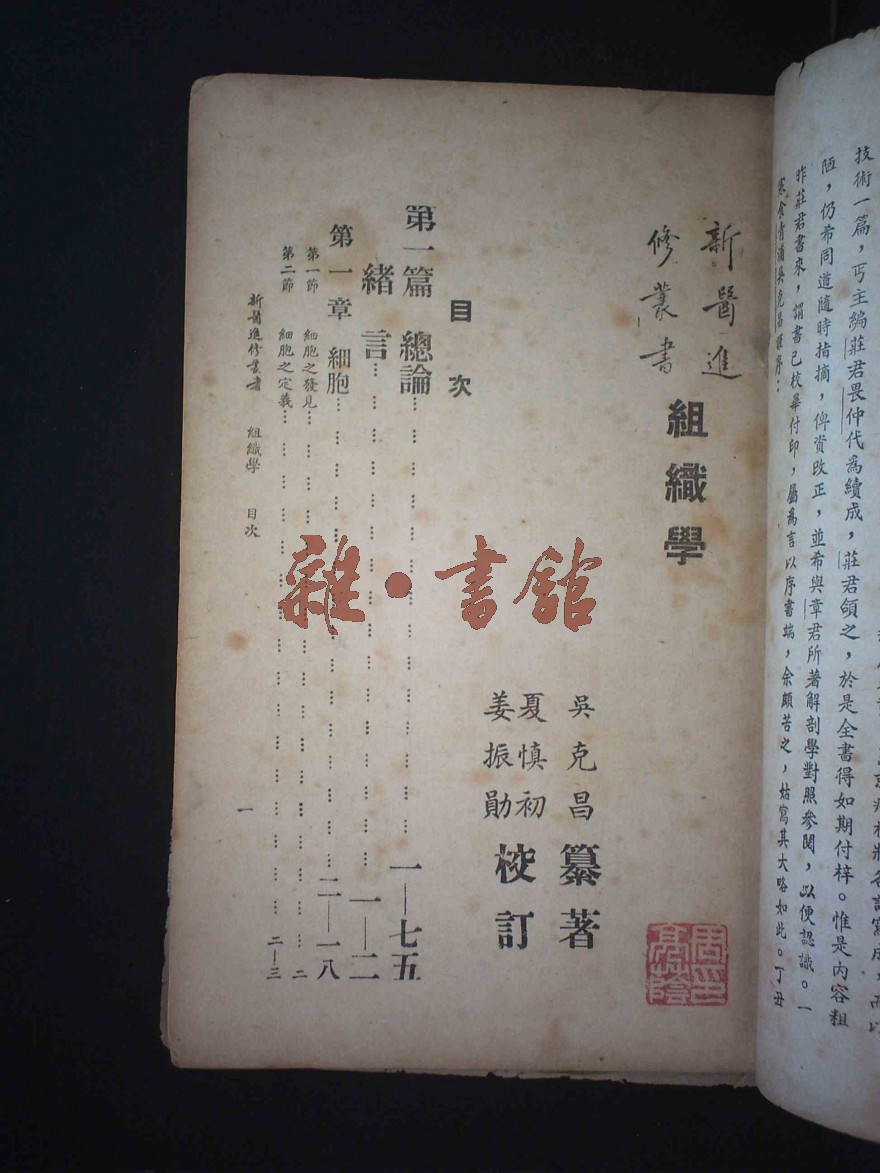 技術一篇，丐主編莊君畏仲代為續成，莊君頷之，於是全書得如期付梓。惟是內容粗
陋，仍希同道隨時指摘，俾資改正，並希與章君所著解剖學對照參閱，以便認識。一
昨莊君書來，謂書已校畢付印，屬為言以序書端，余頗苦之，姑寫其大略如此。丁丑
寒食青浦吳克昌謹序：
新醫進
修叢書
組織學
吳克昌纂著
夏慎初
姜振勛
校訂
目次
第一篇 總論……一—七五
緒言……一—二
第一章 細胞……二—一八
第一節 細胞之發見……二
第二節 細胞之定義……二—三
新醫進修叢書 組織學 目次
一
雜·書館